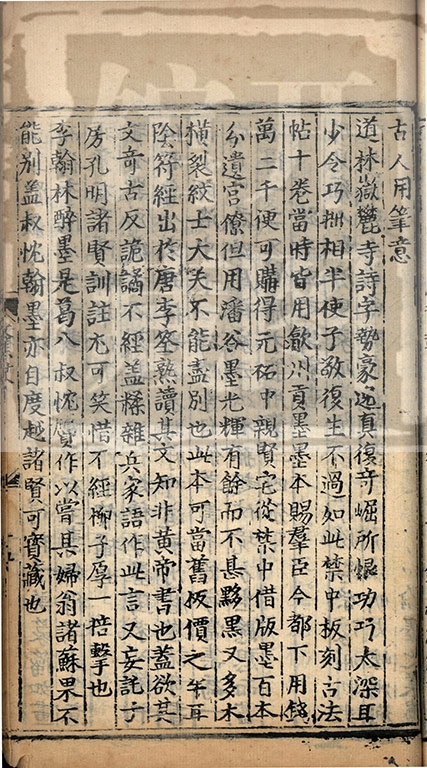 古人用筆意
道林嶽麓寺詩字勢豪逸真復竒崛所恨功巧太深耳
少令巧拙相半使子敬復生不過如此禁中板刻古法
帖十卷當時皆用歙州貢墨墨本賜羣臣今都下用錢
萬二千便可購得元祐中親賢宅從禁中借版墨百本
分遺宮僚但用潘谷墨光輝有餘而不甚黟黑又多木
橫裂紋士大夫不能盡別也此本可當舊板價之半耳
陰符經出於唐李筌熟讀其文知非黃帝書也盖欲其
文竒古反詭譎不經盖糅雜兵家語作此言又妄託子
房孔明諸賢訓註尤可笑惜不經柳子厚一掊擊也
李翰林醉墨是葛八叔忱贋作以嘗其婦翁諸蘇果不
能別盖叔忱翰墨亦自度越諸賢可寳藏也